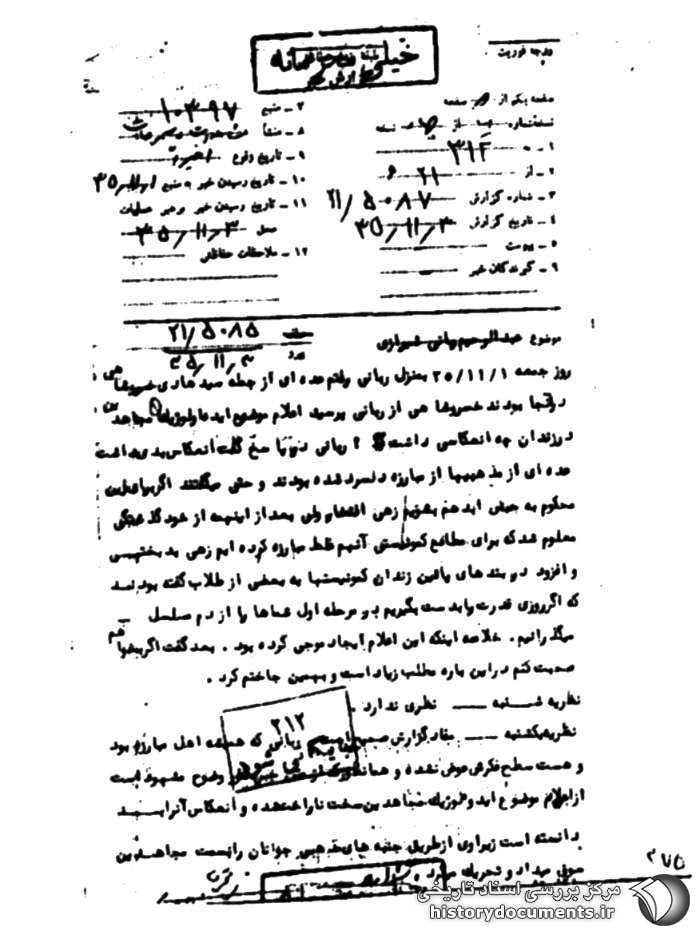 خیلی محرمانه
درجه فوریت
صفحه یکم از صفحه
نسخه شماره از نسخه
۱ - به ۳۱۲
۲ - از ۲۱ ه
۳ - شماره گزارش ۲۱/۵۰۸۷
۴ - تاریخ گزارش ۳۵/۱۱/۳
۵ - پیوست
۶ - گیرندگان خبر
۷ - منبع ۱۰۳۹۷
۸ - منشأ
۹ - تاریخ وقوع اخیرا
۱۰ - تاریخ رسیدن خبر به منبع
۱۱ - تاریخ رسیدن خبر به رهبر عملیات
محل ۳۵/۱۱/۳
۱۲ - ملاحظات حفاظتی
۲۱/۵۰۸۵
۳۵/۱۱/۳
موضوع عبدالرحیم ربانی شیرازی
روز جمعه ۳۵/۱۱/۱ بمنزل ربانی رفتم عده ای از جمله سید هادی خسروشاهی
در آنجا بودند خسروشاهی از ربانی پرسید اعلام مواضع ایدئولوژیک مجاهدین
در زندان چه انعکاسی داشت ؟ ربانی در پاسخ گفت انعکاس بدی داشت
عده ای از مذهبیها از مبارزه دلسرد شده بودند و حتی میگفتند اگر برای این
محکوم به حبس ابد هم بشویم زهی افتخار ولی بعد از اینهمه از خود گذشتگی
معلوم شد که برای مطامع کمونیستی آنهم غلط مبارزه کرده ایم زهی بدبختی
و افزود در بندهای پائین زندان کمونیستها به بعضی از طلاب گفته بودند
که اگر روزی قدرت را بدست بگیریم در مرحله اول شماها را از دم مسلسل
میگذرانیم . خلاصه اینکه این اعلام ایجاد موجی کرده بود . بعد گفت اگر بخواهم
صحبت کنم در این باره مطلب زیاد است و بهمین جا ختم کرد .
نظریه شنبه ـــ نظری ندارد .
نظریه یکشنبه ـــ مفاد گزارش صحیح است ربانی که همیشه اهل مبارزه بود
و هست سطح فکرش عوض نشده و وضوح مشهود است
از اعلام موضوع ایدئولوژیک مجاهدین سخت ناراحت شده و انعکاس آنرا بسیار بد
دانسته است زیرا وی از طریق جنبه های مذهبی جوانان را بسمت مجاهدین
سوق میداد و تحریک
۲۱۲
۲۷۵
مرکز بررسی اسناد تاریخی
historydocuments.ir